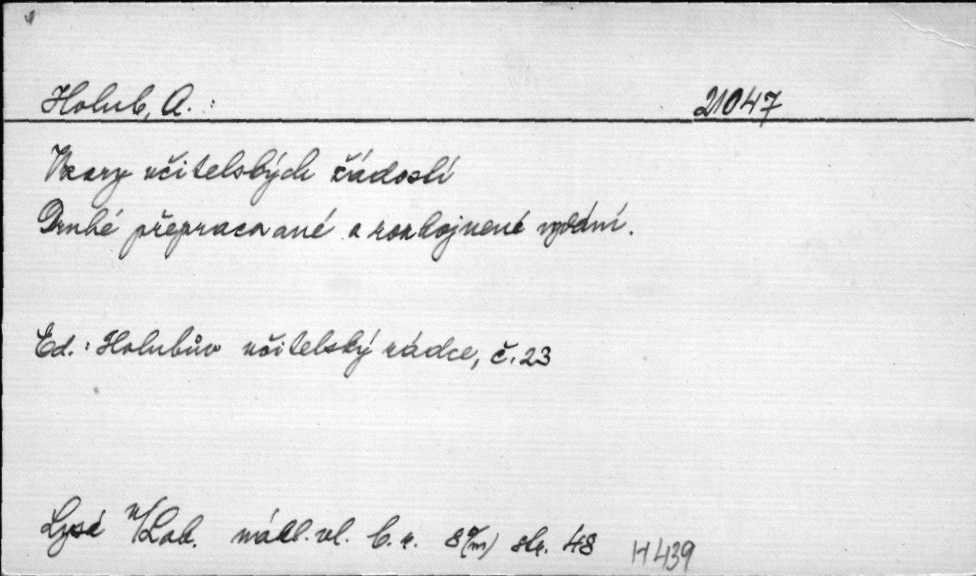 Holub, A. : 21047
Vzory učitelských žádostí
Druhé přepracované a rozhojnené vydání.
Ed. : Holubův učitelský rádce, č. 23
Lysá n/Lab. nákl. vl. b. r. 8°(m) str. 48 H 439